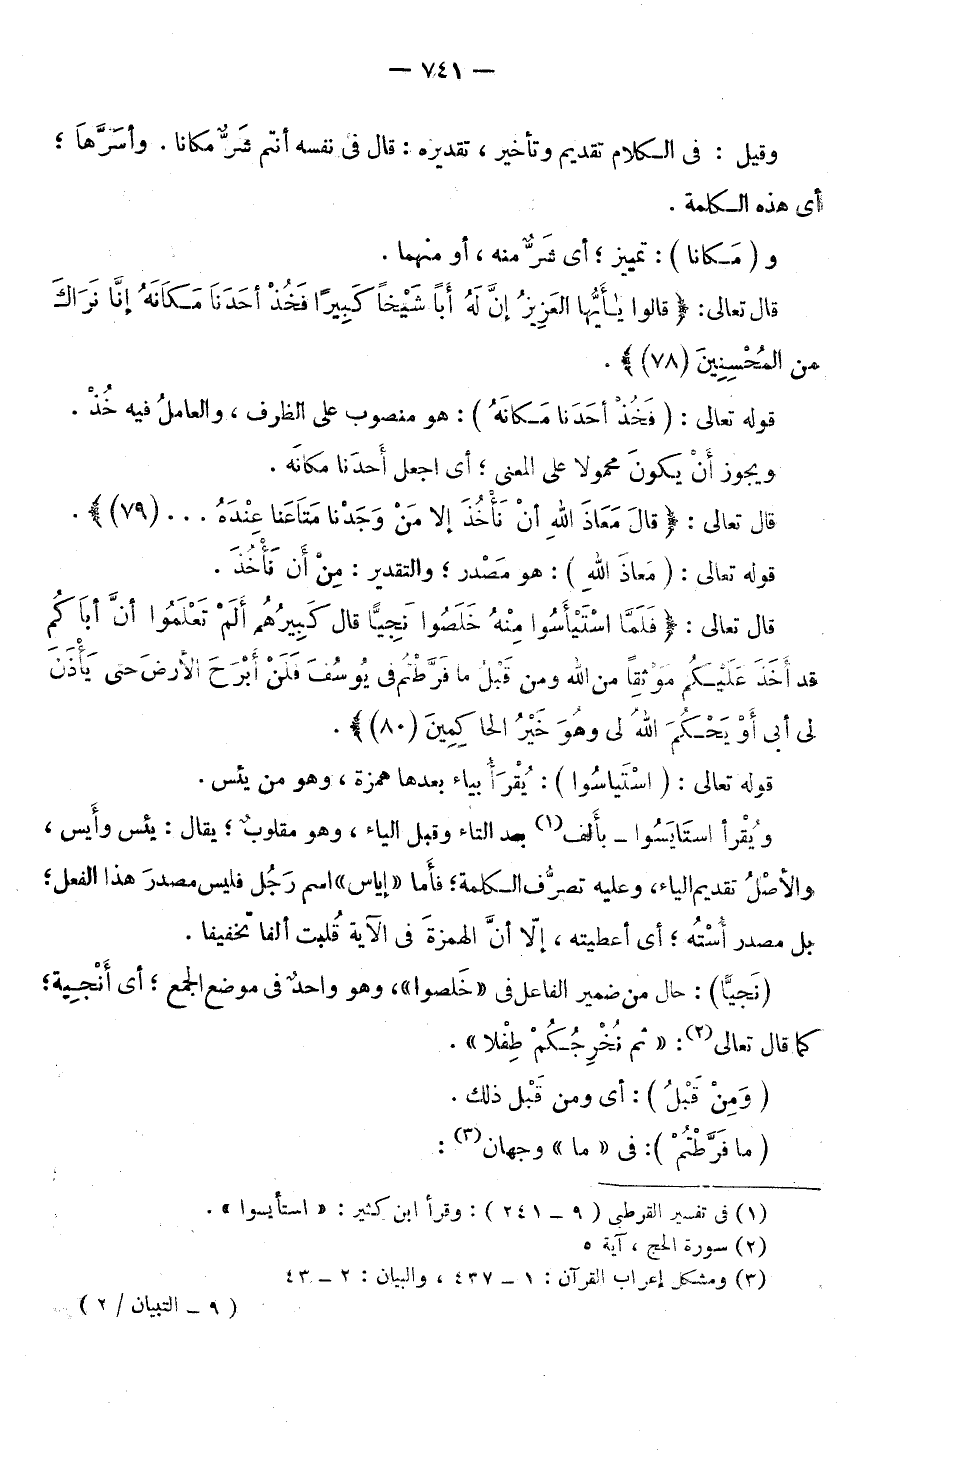 — ٧٤١ —
وقيل : فى الـكلام تقديم وتأخير ، تقديره : قال فى نفسه أنتم شَرٌّ مكانا . وأسَرَّهاَ ؛
أى هذه الـكلمة .
و ( مَـكانا ) : تمييز ؛ أى شَرٌّ منه ، أو منهما .
قال تعالى: ﴿ قالوا يٰأَيُّها العَزِيزُ إنَّ لَهُ أَباً شَيْخاً كَبِيرًا فَخُذْ أحَدَنَا مَـكَانَهُ إنَّا نَرَاكَ
من المُحْسِنِينَ (٧٨) ﴾ .
قوله تعالى : ( فَخُذْ أحَدَنا مَـكانَهُ ) : هو منصوب على الظرف ، والعاملُ فيه خُذْ .
ويجوز أنْ يـكونَ محمولا على المعنى ؛ أى اجعل أَحدَنا مكانَه .
قال تعالى : ﴿ قالَ مَعَاذَ اللهِ أنْ نَأْخُذَ إلا مَنْ وَجَدْنا مَتَاعَنا عِنْدَهُ . . . (٧٩) ﴾ .
قوله تعالى : ( مَعاذَ اللهِ ) : هو مَصْدر ؛ والتقدير : مِنْ أَن نَأْخُذَ .
قال تعالى : ﴿ فَلَمَّا اسْتَيْأَسُوا مِنْهُ خَلَصُوا نَجِيًّا قال كَبِيرُهُم أَلَمْ تَعْلَمُوا أنَّ أباَكُم
قد أَخَذَ عَلَيْـكُم مَوْثِقاً من الله ومن قَبْلُ ما فَرَّطْتُم فى يُوسُفَ فَلَنْ أَبْرَحَ الأرضَ حتى يَأْذَنَ
لى أبى أَوْ يَحْـكُمَ اللهُ لى وهُوَ خَيْرُ الحاكِمِينَ (٨٠) ﴾ .
قوله تعالى : ( اسْتَياسُوا ) : يُقْرَأُ بياء بعدها همزة ، وهو من يئس .
ويُقْرأ استَايَسُوا ـ بألف(١) بعد التاء وقبل الياء ، وهو مقلوبٌ ؛ يقال : يئس وأَيس ،
والأصْلُ تقديم الياء، وعليه تصرُّف الـكلمة؛ فأَما «إياس» اسم رَجُل فليس مصدرَ هذا الفعل؛
بل مصدر أُسْتُه ؛ أى أعطيته ، إلّا أنَّ الهمزةَ فى الآية قُلبت ألفا تخفيفا .
(نَجيًّا) : حال من ضمير الفاعل فى «خَلصوا»، وهو واحدٌ فى موضع الجمع ؛ أى أَنْجـية؛
كما قال تعالى(٢): « ثم نُخْرِجُـكُمْ طِفْلا » .
( وَمِنْ قَبْلُ ) : أى ومن قَبْل ذلك .
( ما فَرَّطْتُمْ ): فى « ما » وجهان(٣) :
(١) فى تفسير القرطبى ( ٩ ـ ٢٤١ ) : وقرأ ابن كثير : « استأيسوا » .
(٢) سورة الحج ، آية ٥
(٣) ومشكل إعراب القرآن : ١ ـ ٤٣٧ ، والبيان : ٢ ـ ٤٣
( ٩ ـ التبيان / ٢ )